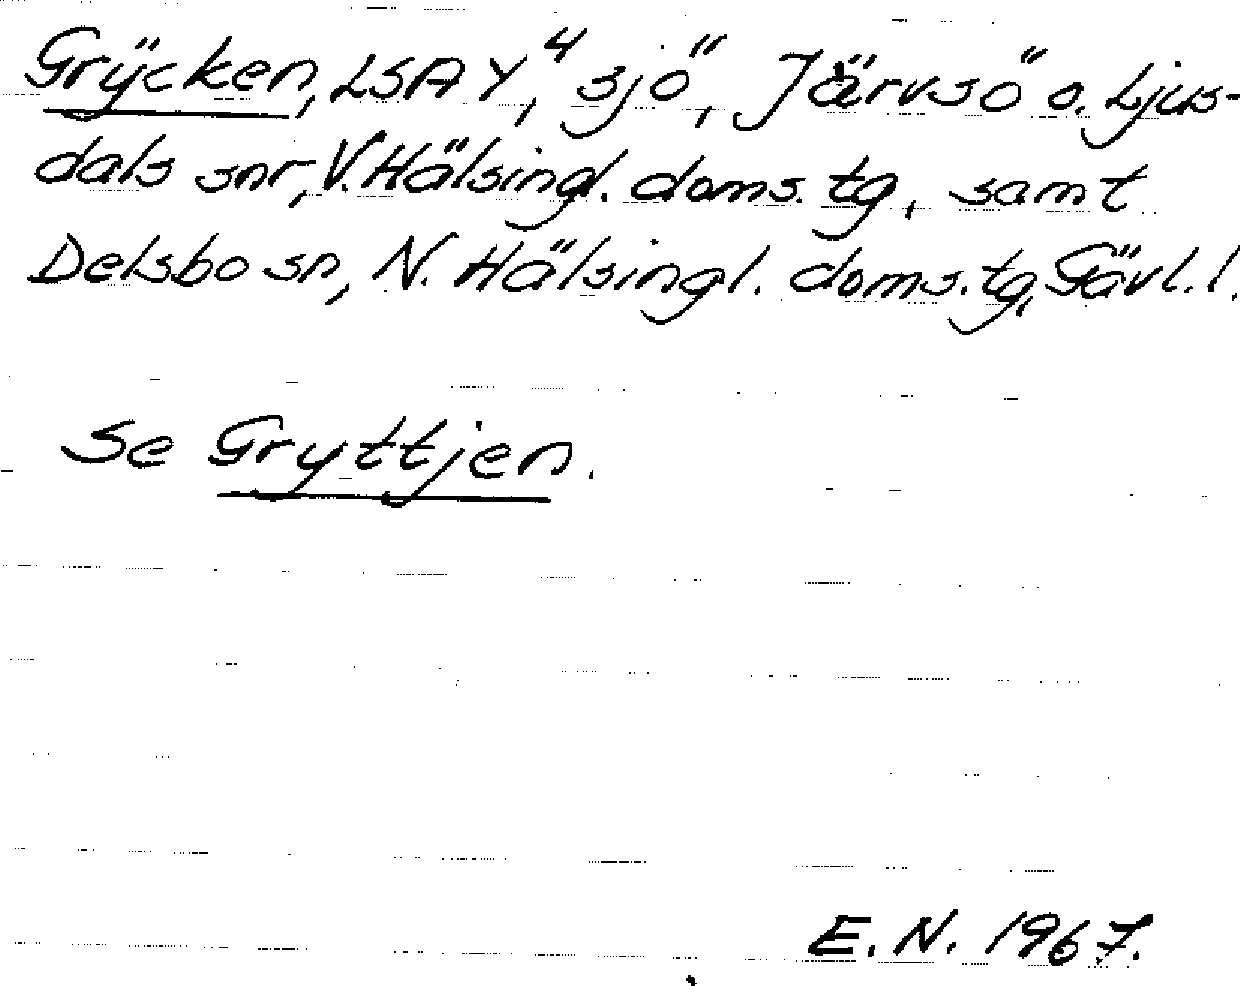 Grÿcken, LSA Y,⁴ sjö, Järvsö o. Ljus-
dals snr, V. Hälsingl. doms. tg, samt
Delsbo sn, N. Hälsingl. doms. tg, Gävl. l.
Se Gryttjen.
E. N. 1967.